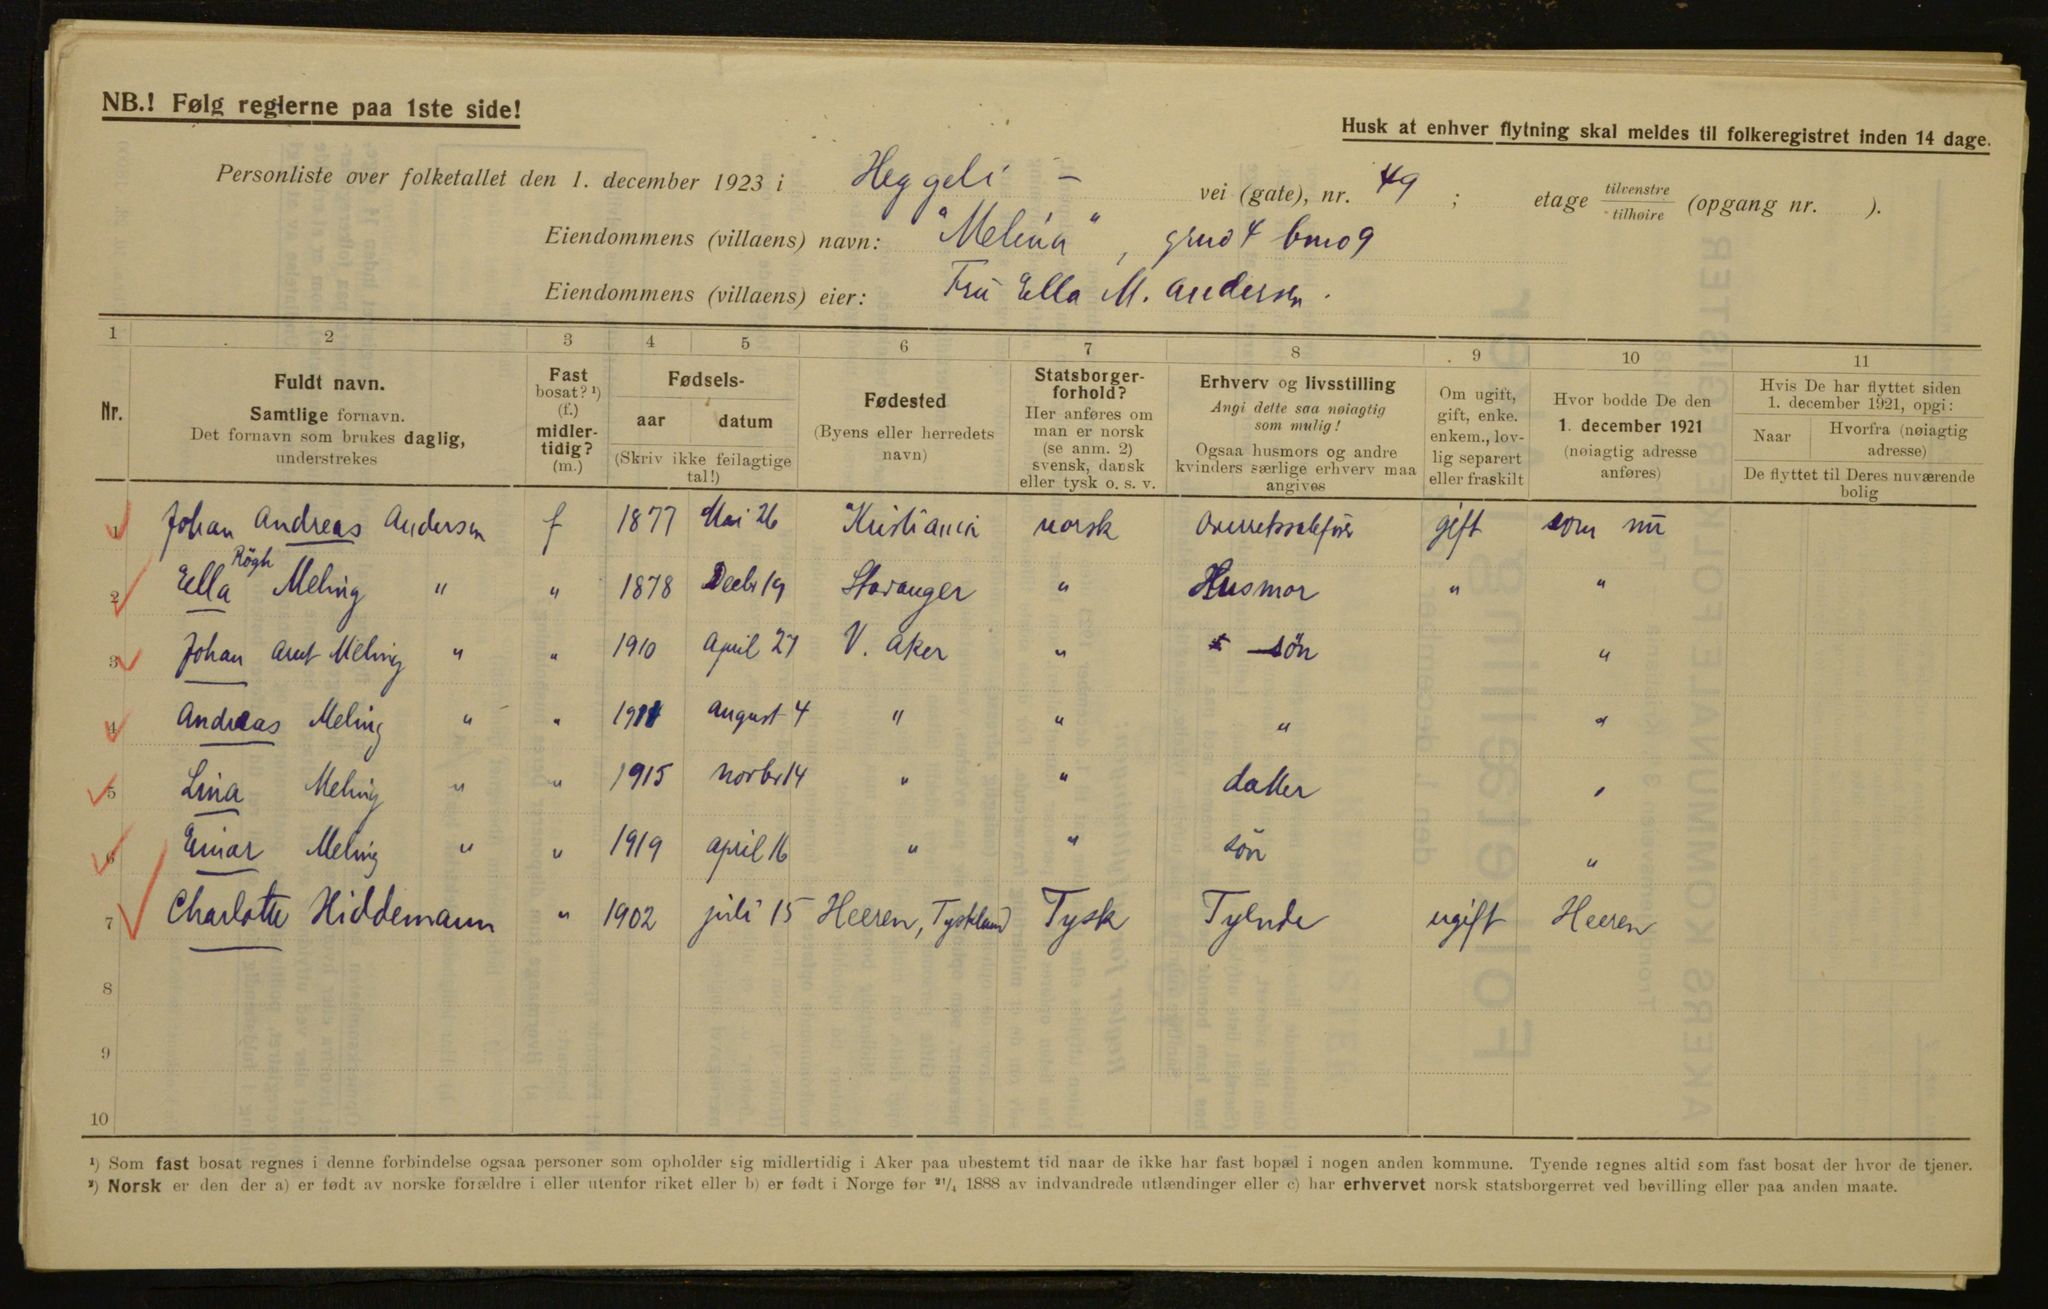 NB.! Følg reglerne paa 1ste side!
Husk at enhver flytning skal meldes til folkeregistret inden 14 dage.
Personliste over folketallet den 1. december 1923 i Heggeli – vei (gate), nr. 49 ; etage tilvenstre / tilhøire (opgang nr. ).
Eiendommens (villaens) navn: "Melina", gno 4 bno 9
Eiendommens (villaens) eier: Fru Ella M. Andersen.
1 2 3 4 5 6 7 8 9 10 11
Nr.
Fuldt navn. Samtlige fornavn. Det fornavn som brukes daglig, understrekes
Fast bosat? ¹) (f.) midlertidig? (m.)
Fødsels- aar datum (Skriv ikke feilagtige tal!)
Fødested (Byens eller herredets navn)
Statsborger-forhold? Her anføres om man er norsk (se anm. 2) svensk, dansk eller tysk o. s. v.
Erhverv og livsstilling Angi dette saa nøiagtig som mulig! Ogsaa husmors og andre kvinders særlige erhverv maa angives
Om ugift, gift, enke. enkem., lov-lig separert eller fraskilt
Hvor bodde De den 1. december 1921 (nøiagtig adresse anføres)
Hvis De har flyttet siden 1. december 1921, opgi: Naar Hvorfra (nøiagtig adresse) De flyttet til Deres nuværende bolig
1 Johan Andreas Andersen f 1877 Mai 26 Kristiania norsk Overretssakfører gift som nu
2 Ella Rögh Meling " " 1878 Decbr 19 Stavanger " Husmor " "
3 Johan Arnt Meling " " 1910 April 27 V. Aker " søn "
4 Andreas Meling " " 1911 August 4 " " " "
5 Lina Meling " " 1915 Novbr 14 " " datter "
6 Einar Meling " " 1919 April 16 " " søn "
7 Charlotte Hiddemann " 1902 juli 15 Heeren, Tyskland Tysk Tyende ugift Heeren
8
9
10
¹) Som fast bosat regnes i denne forbindelse ogsaa personer som opholder sig midlertidig i Aker paa ubestemt tid naar de ikke har fast bopæl i nogen anden kommune. Tyende regnes altid som fast bosat der hvor de tjener.
²) Norsk er den der a) er født av norske forældre i eller utenfor riket eller b) er født i Norge før ²¹/₄ 1888 av indvandrede utlændinger eller c) har erhvervet norsk statsborgerret ved bevilling eller paa anden maate.